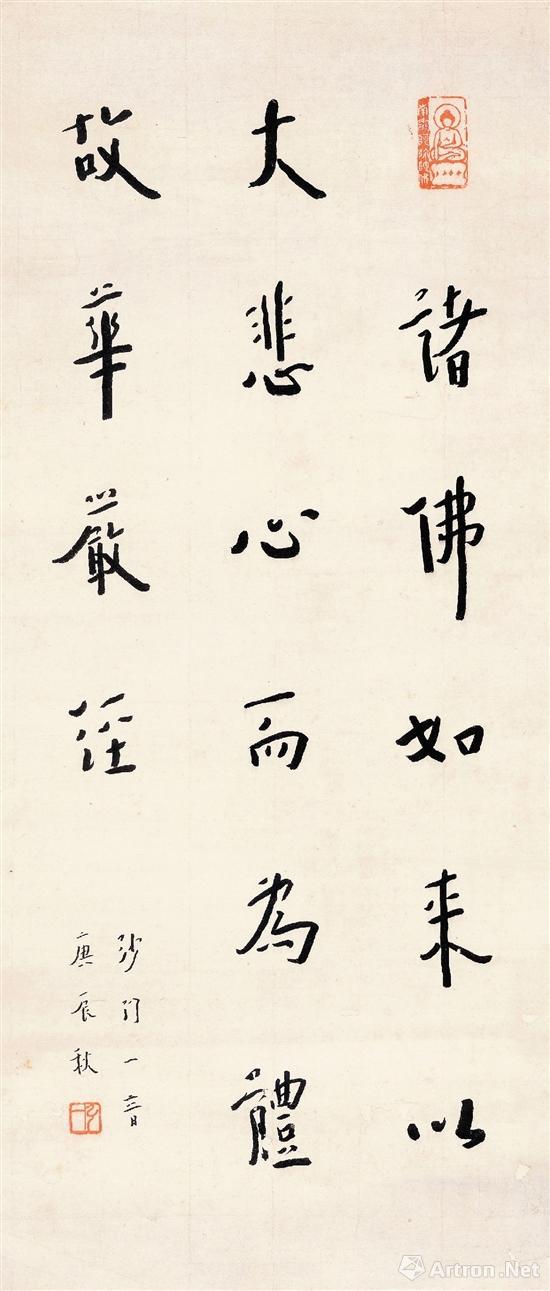 諸佛如来以
大悲心而為體
故華嚴經
沙門一音
庚辰秋
弘一
Artron.Net